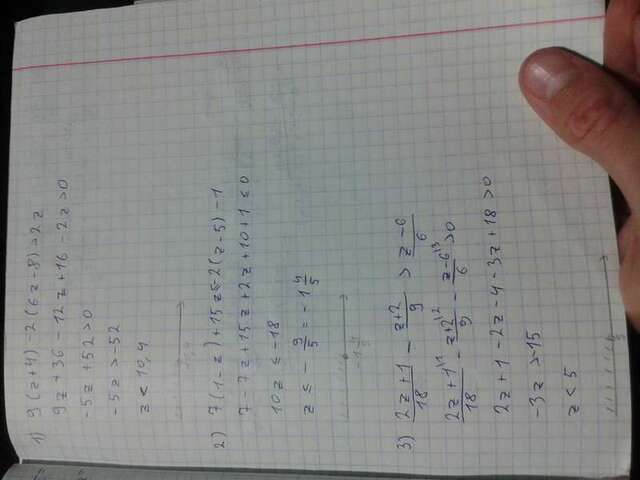 1) 9(z+4) -2(6z-8)>2z
9z+36-12z+16-2z>0
-5z+52>0
-5z>-52
z<10,4
10,4
2) 7(1-z)+15z≤-2(z-5)-1
7-7z+15z+2z+10+1≤0
10z≤-18
z≤-9/5=-1 4/5
-1 4/5
3) (2z+1)/18 - (z+2)/9 > (z-6)/6
(2z+1)/18 - (z+2)/9 - (z-6)/6 >0
2z+1-2z-4-3z+18>0
-3z>-15
z<5
5